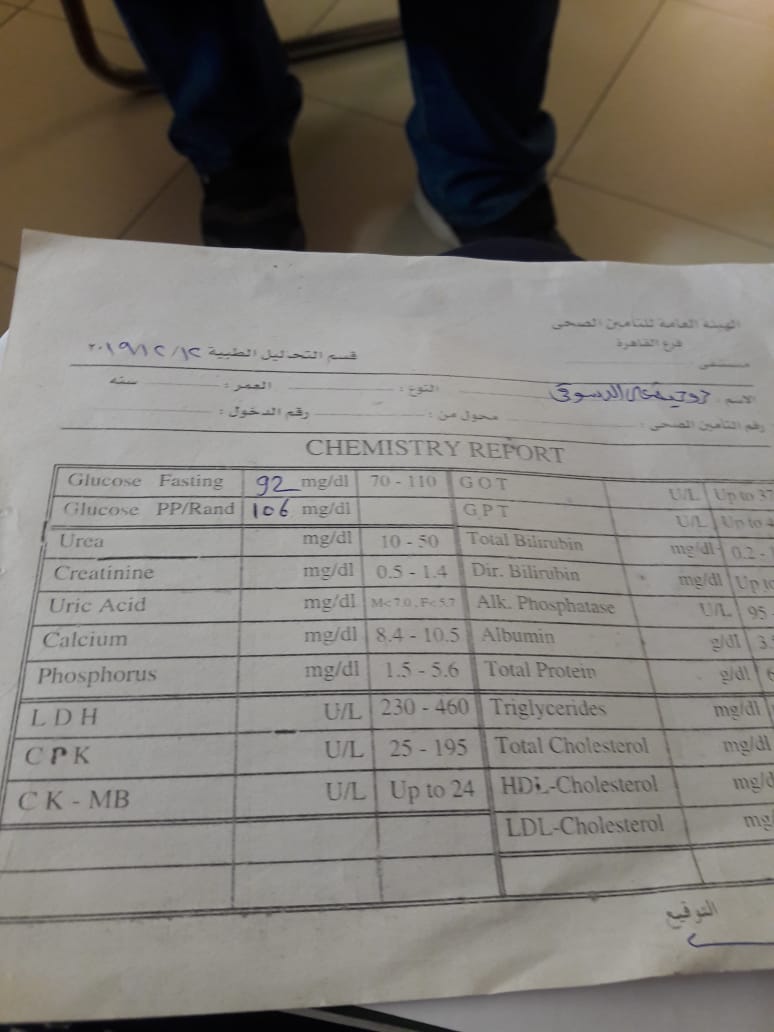 الهيئة العامة للتأمين الصحى
فرع القاهرة
مستشفى
قسم التحاليل الطبية ٢٠١٩/١٢/١٢
الاسم : على الدسوقى النوع : العمر : سنه
رقم التأمين الصحى : محول من : رقم الدخول :
CHEMISTRY REPORT
Glucose Fasting 92 mg/dl 70 - 110 GOT U/L Up to 37
Glucose PP/Rand 106 mg/dl GPT U/L Up to 4
Urea mg/dl 10 - 50 Total Bilirubin mg/dl 0.2 -
Creatinine mg/dl 0.5 - 1.4 Dir. Bilirubin mg/dl Up to
Uric Acid mg/dl M< 7.0 , F< 5.7 Alk. Phosphatase U/L 95
Calcium mg/dl 8.4 - 10.5 Albumin g/dl 3.
Phosphorus mg/dl 1.5 - 5.6 Total Protein g/dl 6
LDH U/L 230 - 460 Triglycerides mg/dl
CPK U/L 25 - 195 Total Cholesterol mg/dl
CK - MB U/L Up to 24 HDL-Cholesterol mg/d
LDL-Cholesterol mg/
التوقيع